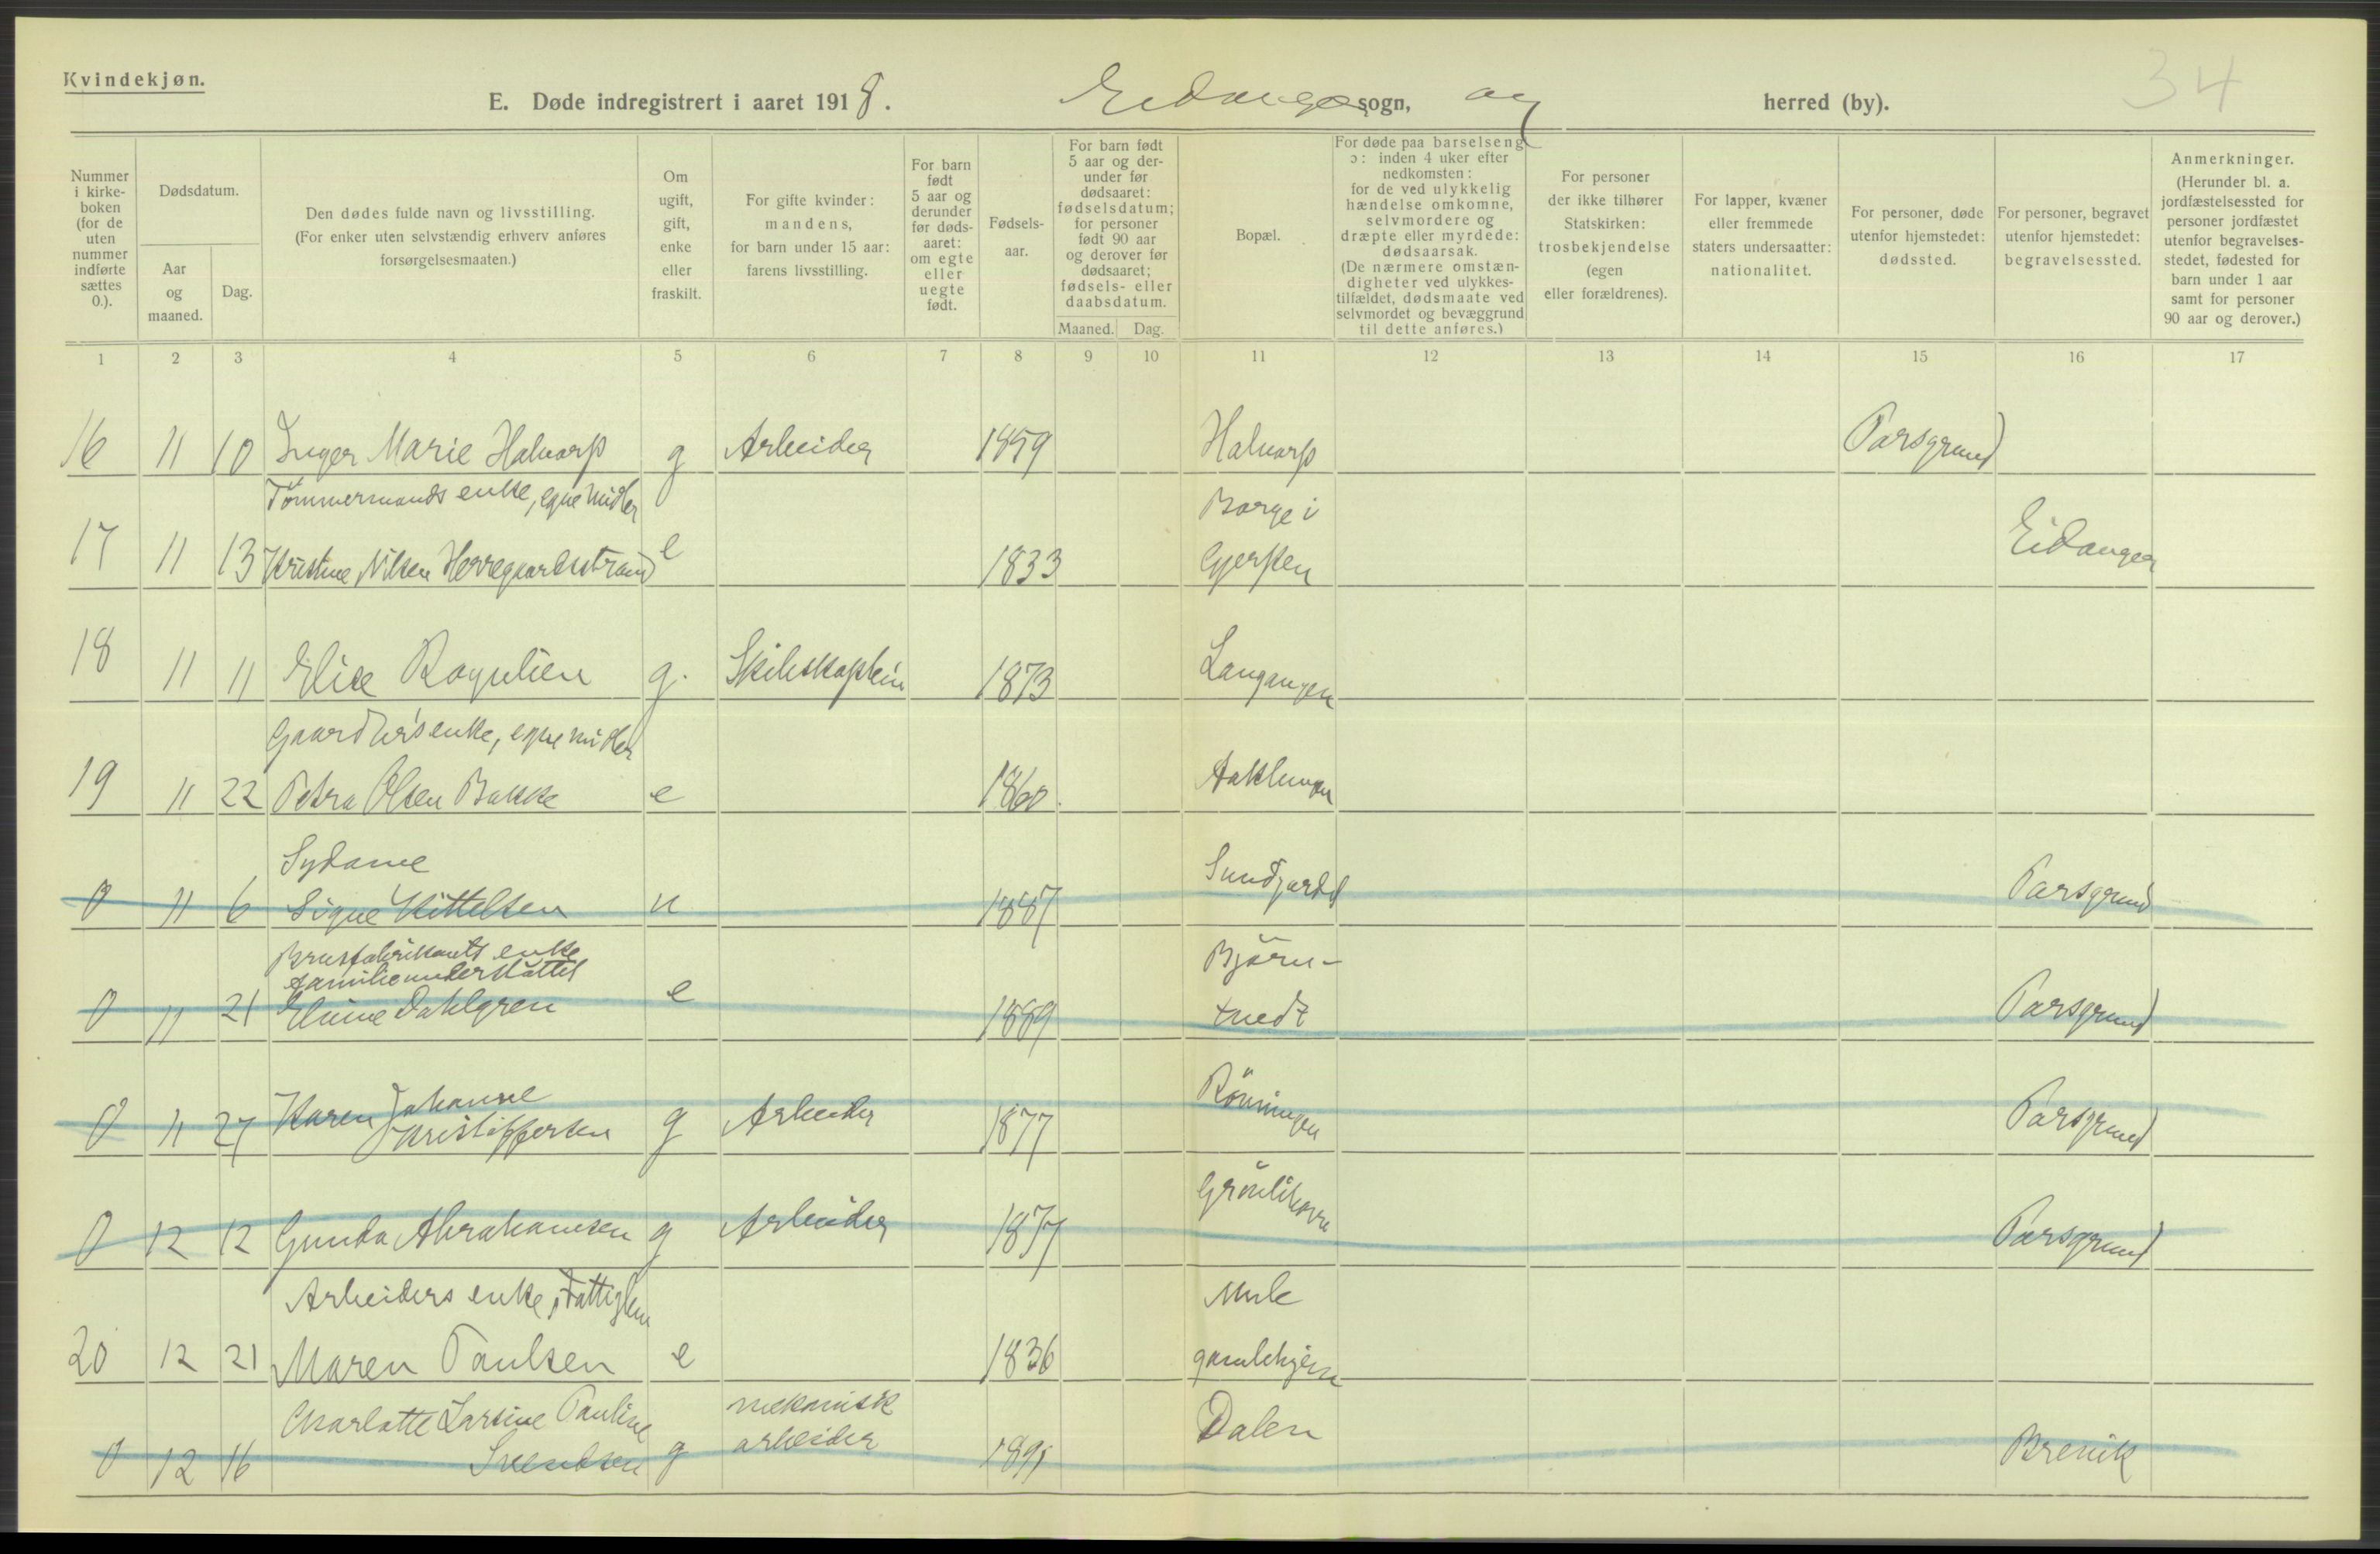 Kvindekjøn.
34
E. Døde indregistrert i aaret 1918. Eidanger sogn, og herred (by).
Nummer i kirkeboken (for de uten nummer indførte sættes 0.).
Dødsdatum.
Aar og maaned.
Dag.
Den dødes fulde navn og livsstilling.
(For enker uten selvstændig erhverv anføres forsørgelsesmaaten.)
Om ugift, gift, enke eller fraskilt.
For gifte kvinder: mandens, for barn under 15 aar: farens livsstilling.
For barn født 5 aar og derunder før dødsaaret: om egte eller uegte født.
Fødselsaar.
For barn født 5 aar og derunder før dødsaaret: fødselsdatum; for personer født 90 aar og derover før dødsaaret; fødsels- eller daabsdatum.
Maaned. Dag.
Bopæl.
For døde paa barselseng ɔ: inden 4 uker efter nedkomsten: for de ved ulykkelig hændelse omkomne, selvmordere og dræpte eller myrdede: dødsaarsak.
(De nærmere omstændigheter ved ulykkestilfældet, dødsmaate ved selvmordet og bevæggrund til dette anføres.)
For personer der ikke tilhører Statskirken: trosbekjendelse (egen eller forældrenes).
For lapper, kvæner eller fremmede staters undersaatter: nationalitet.
For personer, døde utenfor hjemstedet: dødssted.
For personer, begravet utenfor hjemstedet: begravelsessted.
Anmerkninger.
(Herunder bl. a. jordfæstelsessted for personer jordfæstet utenfor begravelsesstedet, fødested for barn under 1 aar samt for personer 90 aar og derover.)
1 2 3 4 5 6 7 8 9 10 11 12 13 14 15 16 17
16 11 10 Inger Marie Halvarp g Arbeider 1859 Halvarp Porsgrund
Tömmermands enke, egne midler Borge i
17 11 13 Kristine Nilsen Herregaardsstrand e 1833 Gjerpen Eidanger
18 11 11 Elise Rognlien g. Skibskaptein 1873 Langangen
Gaardbr's enke, egne midler
19 11 22 Petra Olsen Bakke e 1860. Aaklungen
Sydame
0 11 6 Signe Kittelsen u 1887 Sundjordet Porsgrund
Brusfabrikants enke Björn-
familieunderstöttet
0 11 21 Elvine Dahlgren e 1889 tvedt Porsgrund
Karen Johanne
0 11 27 Kristoffersen g Arbeider 1877 Rönningen Porsgrund
0 12 12 Gunda Abrahamsen g Arbeider 1877 Grönlikova Porsgrund
Arbeiders enke, Fattiglem Mule
20 12 21 Maren Paulsen e 1836 gamlehjem
Charlotte Larsine Pauline mekanisk Dalen
0 12 16 Svendsen g arbeider 1891 Brevik